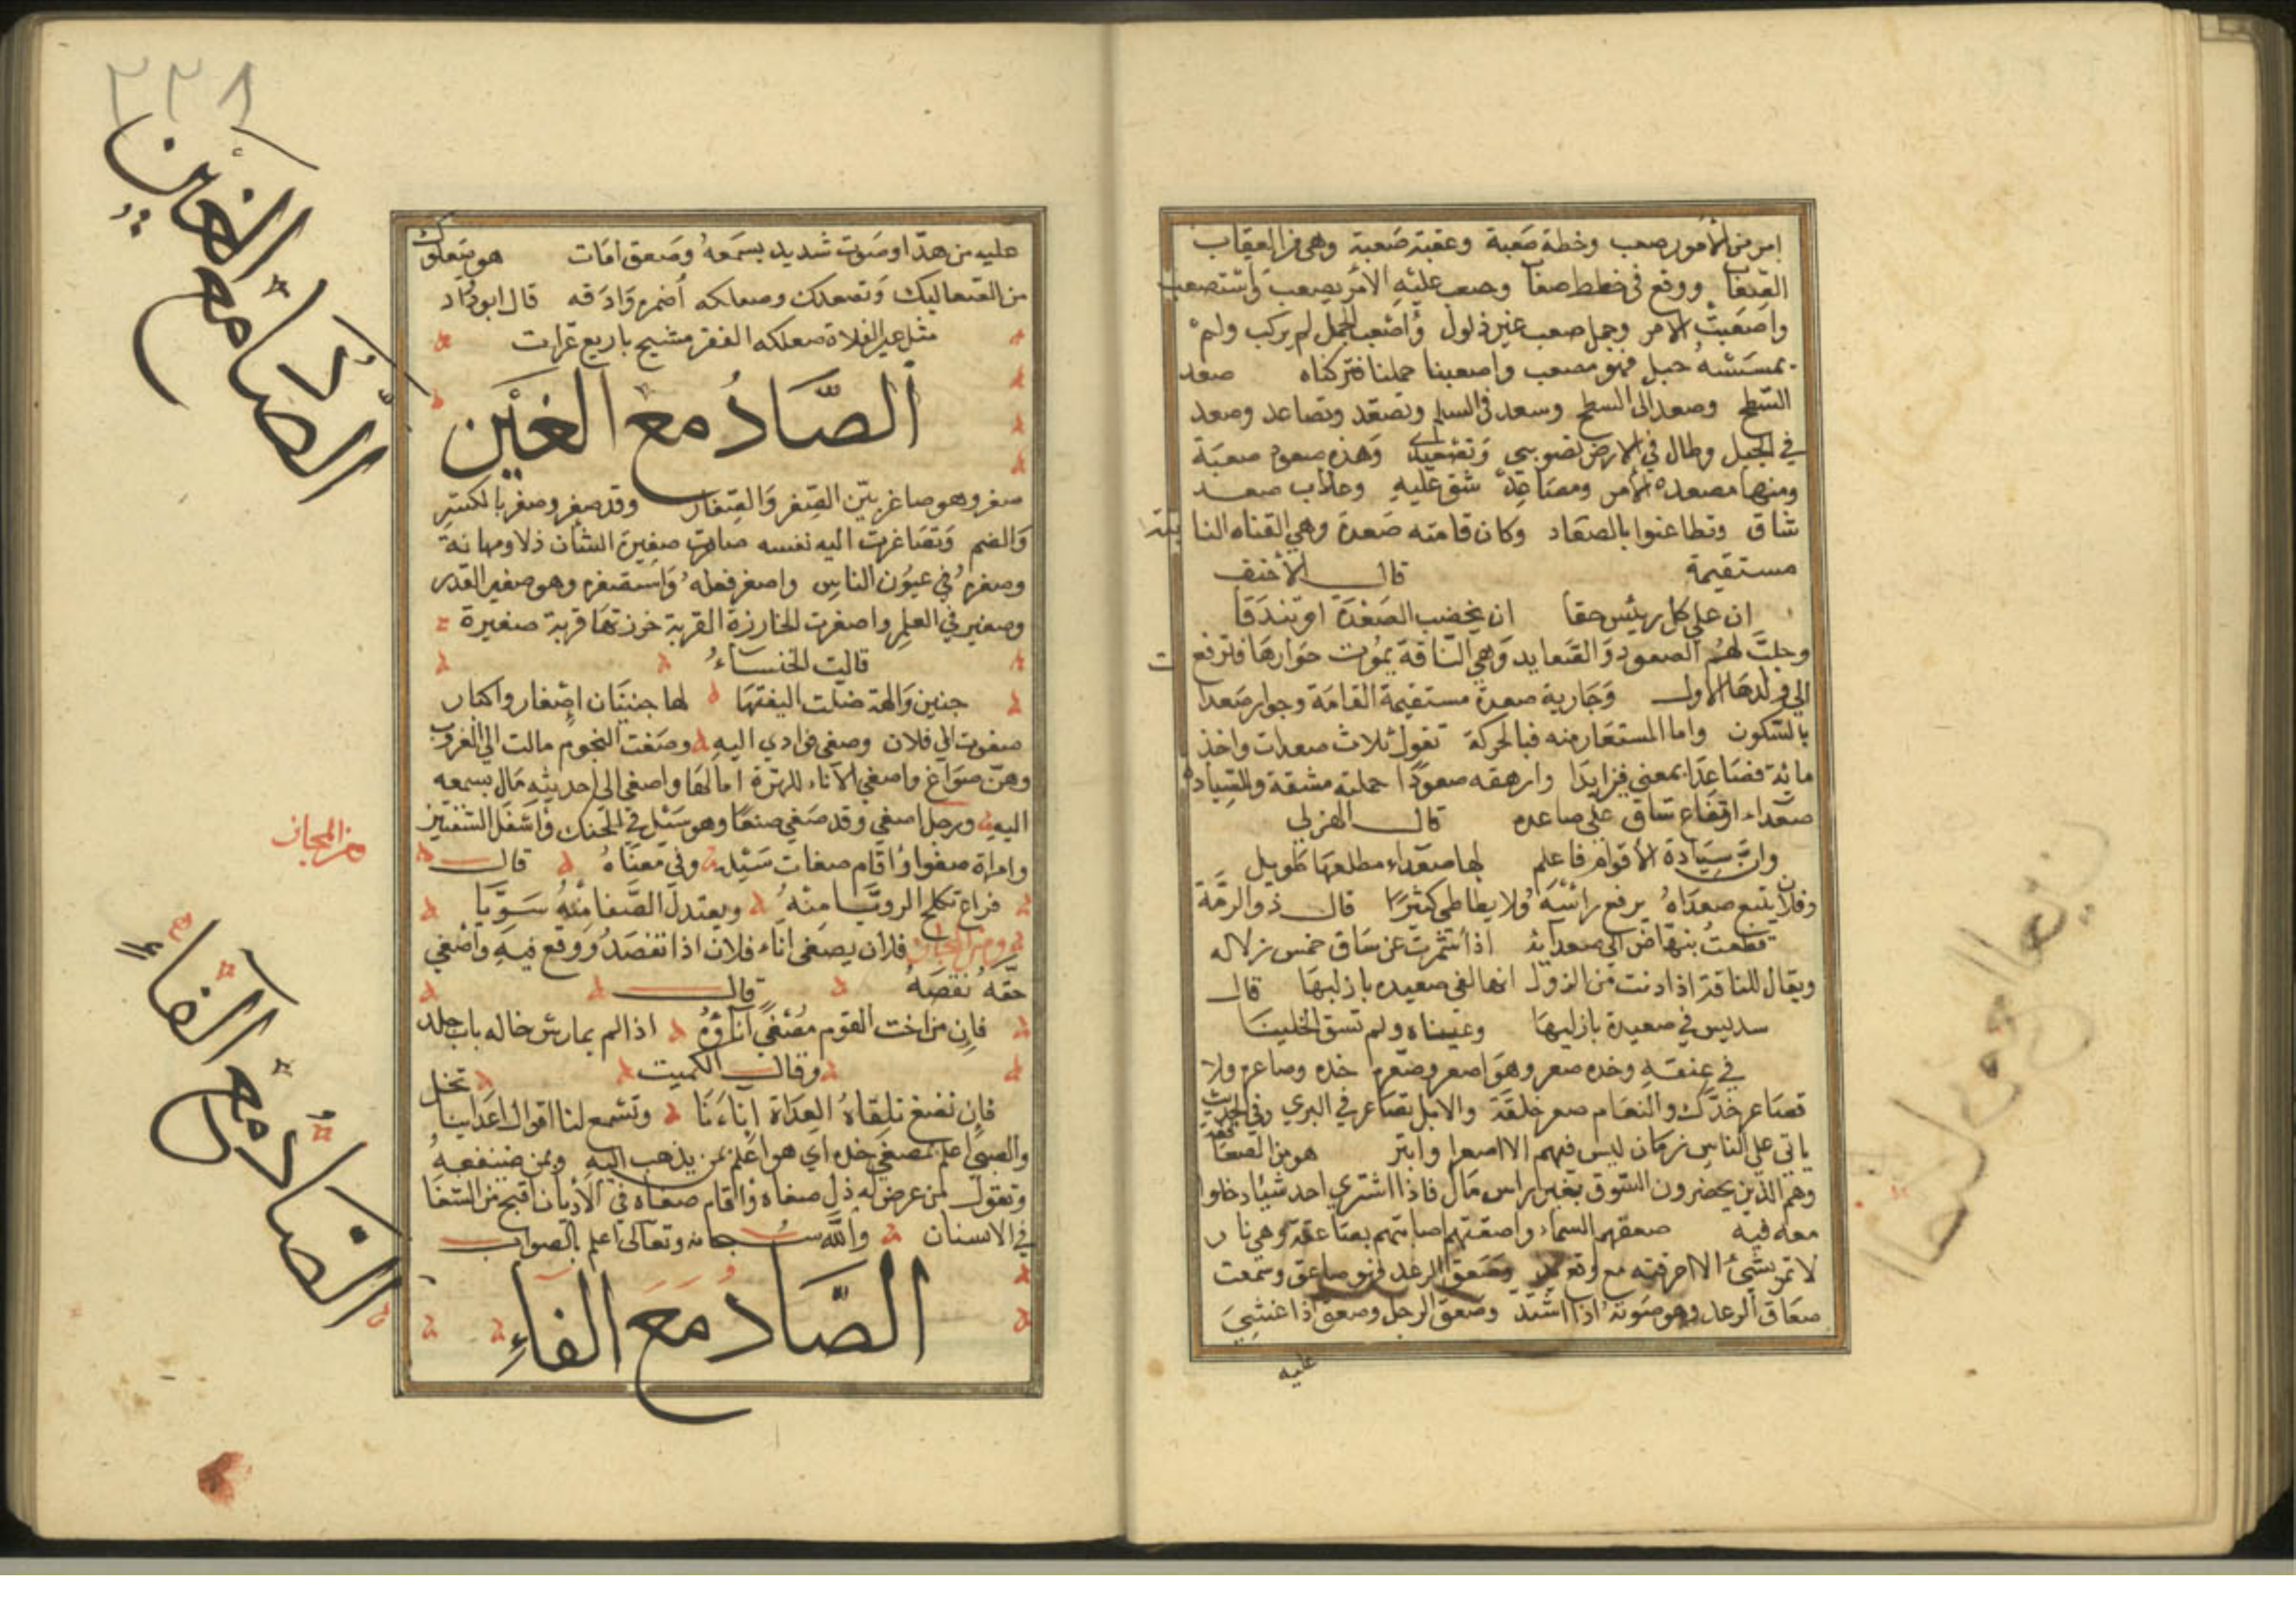 امر من الأمور صعب وخطة صعبة وعقبة صعبة وهي من العقاب
الصعاب ووقع في خطط صعاب وصعب عليه الامر يصعب واستصعب
واصعبت الامر وجمل صعب غير ذلول وأصعب الجمل لم يركب ولم
يمسسه حبل فهو مصعب واصعبنا جملنا فتركناه صعد
السطح وصعد الى السطح وسعد في السلم وتصعد وتصاعد وصعد
في الجبل وطال في الارض تصويبي وتصعيدي وهذه صعود صعبة
ومنها مصعدة الأمر ومصاعد شق عليه وعذاب صعد
شاق وتطاعنوا بالصعاد وكان قامته صعدة وهي القناه النابتة
مستقيمة قال الأخنف
ان على كل رئيس حقا ان يخضب الصعدة او تندقا
وحلبت لهم الصعود والصعايد وهي الناقة يموت حوارها فترفع
الي ولدها الاول وجارية صعدة مستقيمة القامة وجوار صعدات
بالسكون واما المستعار منه فبالحركة تقول ثلاث صعدات واخذ
ماية فصاعدا بمعنى فزايدا وارهقه صعودا حملته مشقة وللسيادة
صعداء ارتفاع شاق على صاعده قال الهذلي
وان سيادة الأقوام فاعلم لها صعداء مطلعها طويل
وفلان يتبع صعداه يرفع رأسه ولا يطاطي كثيرا قال ذو الرمة
قطعت بنهاض الى صعدايه اذا شمرت عن ساق خمس زلازله
ويقال للناقة اذا دنت من البزول انها لفي صعيده بازليها قال
سديس في صعيدة بازليها وعبناه ولم تسق الجنينا
في عنقه وخده صعر وهو اصعر وصعر خده وصاعره ولا
تصاعر خدك والنعام صعر خلقة والابل تصاعر في البري وفي الحديث
ياتي على الناس زمان ليس فيهم الا اصعر او ابتر هو من الصعافقة
وهم الذين يحضرون السوق بغير راس مال فاذا اشتري احد شيئا دخلوا
معه فيه صعقهم السماء واصعقتهم اصابتهم بصاعقة وهي نار
لا تمر بشيء الا احرقته مع وقع وصعق الرعد فهو صاعق وسمعت
صعاق الرعد وهو صوته اذا اشتد وصعق الرجل وصعق اذا غشي
عليه
٢٢٨
عليه من هدة او صوت شديد يسمعه وصعق امات هو يتعلوك
من الصعاليك وتصعلك وصعلكه أضمره وادقه قال ابو دؤاد
مثل عير الفلاة صعلكه الفقر مشيح باربع عزات
الصاد مع الغين
صغر وهو صاغر بين الصغر والصغار وقد صغر وصغر بالكسر
والضم وتصاغرت اليه نفسه صارت صغيرة الشان ذلا ومهانة
وصغره في عيون الناس واصغر فعله واستصغره وهو صغير القدر
وصغير في العلم واصغرت الخارزة القربة خرزتها قربة صغيرة
قالت الخنساء
حنين والهة ضلت اليفتها لها حنينان إصغار واكبار
صغوت الى فلان وصغى فوادي اليه وصغت النجوم مالت الى الغروب
وهن صواغ واصغى الآناء للهرة امالها واصغى الى حديثه مال بسمعه
اليه ورجل اصغى وقد صغي صغا وهو ميل في الحنك واسفل الشفتين
وامراة صغوا واقام صغات ميله وفي معناه قال
من المجاز
فراع تكلح الروقا منه ويعتدل الصغا منه سويا
ومن المجاز فلان يصغى اناء فلان اذا تنقصه ووقع فيه واصغى
حقه نقصه قال
فان من اخت القوم مصغى اناؤه اذا لم يمارس خاله باب جلد
وقال الكميت
فان تصغ تلقاه العداة إناءنا وتسمع لنا اقوال اعدائنا تخل
والصبي اعلم بمصغى خده اي هو اعلم بمن يذهب اليه وبمن ينفعه
وتقول لمن عرض له ذل صغاه واقام صغاه في الأديان اقبح من الشغا
في الاسنان والله سبحانه وتعالى اعلم بالصواب
الصاد مع الفاء
الصاد مع الغين
الصاد مع الفاء